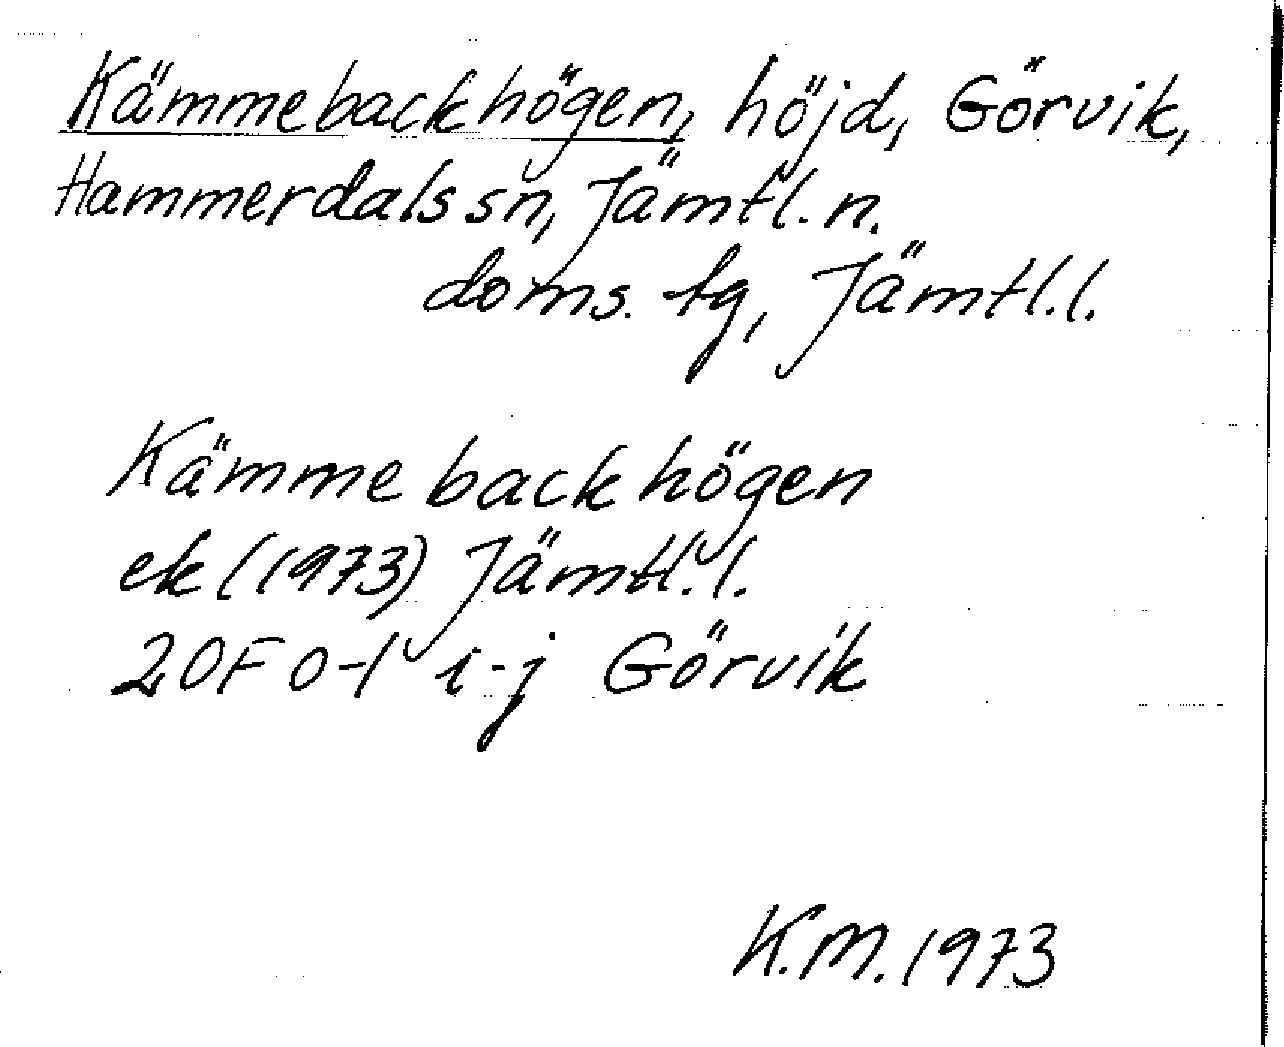 Kämmebackhögen, höjd, Görvik,
Hammerdals sn, Jämtl. n.
doms. tg, Jämtl. l.
Kämmebackhögen
ek (1973) Jämtl. l.
20F 0-1 i-j Görvik
K.M. 1973